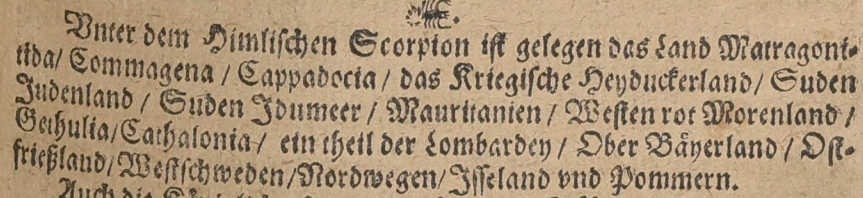 Vnter dem Himlischen Scorpion ist gelegen das Land Matragoni-
tida/ Commagena / Cappadocia / das Kriegische Heyduckerland/ Suden
Judenland / Suden Idumeer / Mauritanien / Westen rot Morenland /
Gethulia/Cathalonia/ ein theil der Lombardey / Ober Bäyerland / Ost-
frießland/Westschweden/Nordwegen/Isseland vnd Pommern.
Auch die